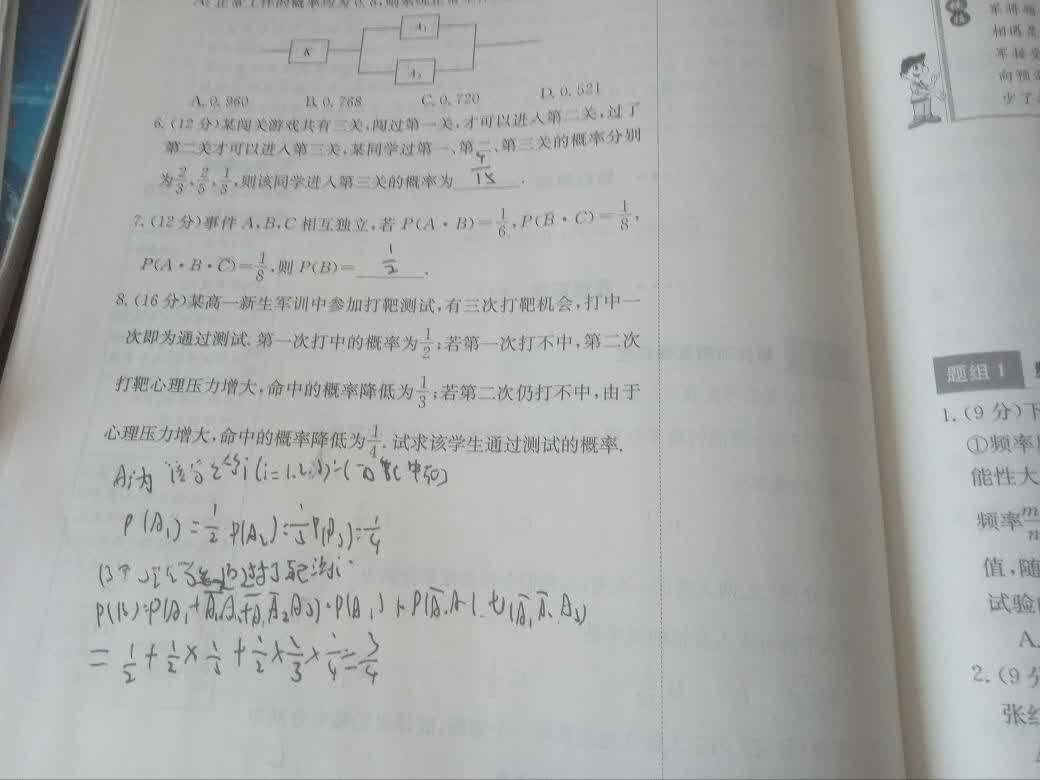 K
A₁
A₂
A. 0.960 B. 0.768 C. 0.720 D. 0.521
6. (12 分)某闯关游戏共有三关,闯过第一关,才可以进入第二关,过了
第二关才可以进入第三关,某同学过第一、第二、第三关的概率分别
为2/3,2/5,1/3,则该同学进入第三关的概率为 4/15 .
7. (12 分)事件 A,B,C 相互独立,若 P(A·B)=1/6,P(B̄·C)=1/8,
P(A·B·C̄)=1/8,则 P(B)= 1/2 .
8. (16 分)某高一新生军训中参加打靶测试,有三次打靶机会,打中一
次即为通过测试.第一次打中的概率为1/2;若第一次打不中,第二次
打靶心理压力增大,命中的概率降低为1/3;若第二次仍打不中,由于
心理压力增大,命中的概率降低为1/4.试求该学生通过测试的概率.
P(A₁)=1/2 P(A₂)=1/3 P(A₃)=1/4
=1/2+1/2×1/3+1/2×2/3×1/4=3/4
军将领
相遇是
军接受
向预
少了
题组1
1. (9 分)下
①频率
能性大
频率m/n
值,随
试验
A.
2. (9分
张红